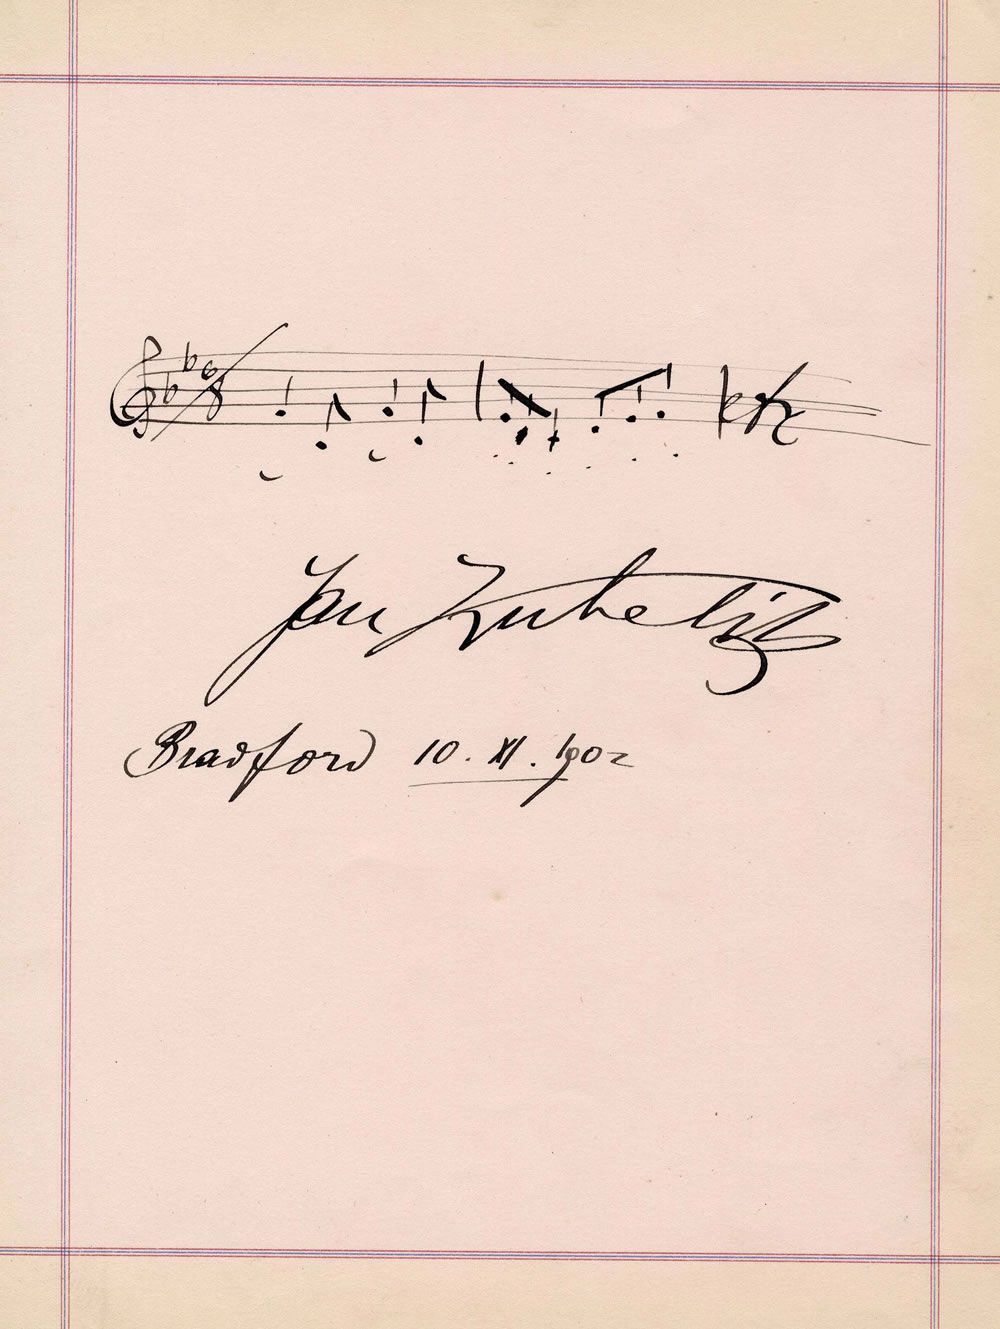 6/8
Jan Kubelik
Bradford 10. XI. 1902